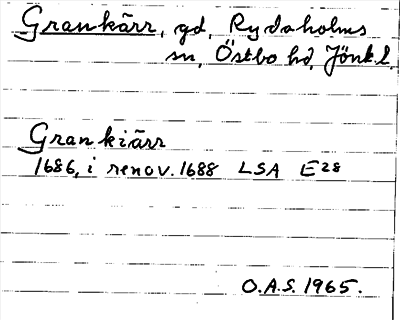 Grankärr, gd, Rydaholms
sn, Östbo hd, Jönk.l.
Grankiärr
1686, i renov. 1688 LSA E28
O.A.S. 1965.